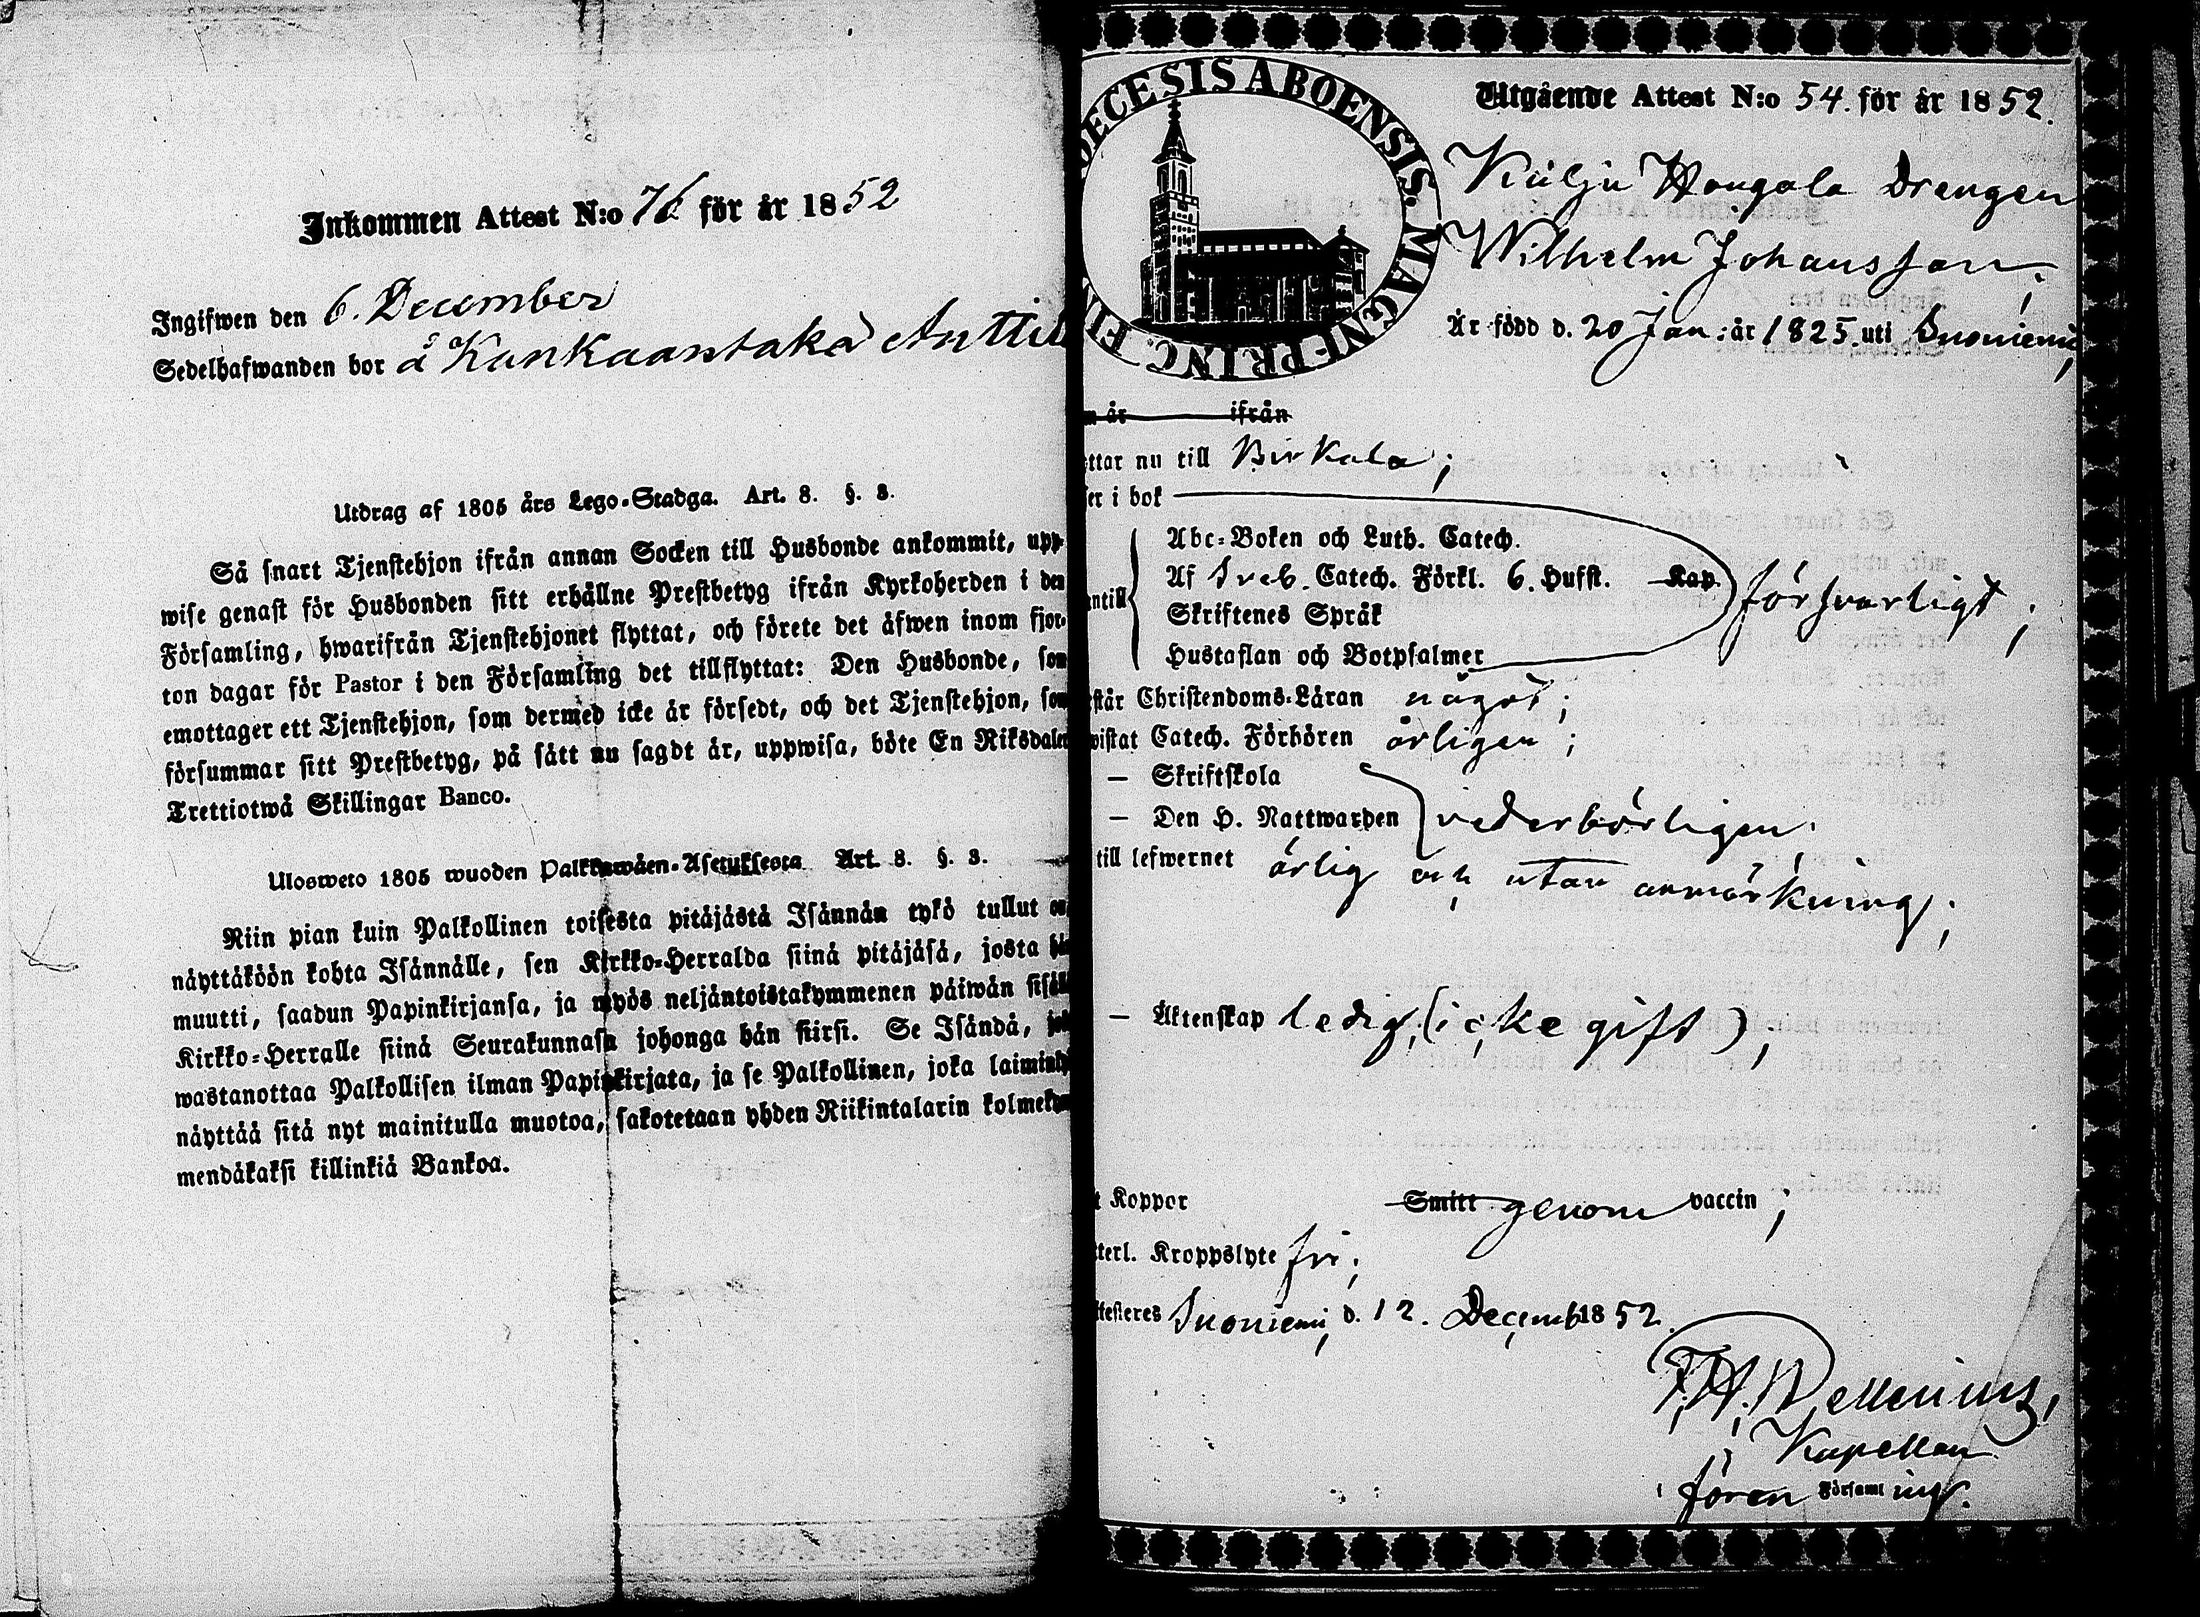 Inkommen Attest N:o 76 för år 1852
Ingifwen den 6. December
Sedelhafwanden bor å Kankaantaka Anttil
Utdrag af 1805 års Lego-Stadga. Art. 8. §. 3.
Så snart Tjenstehjon ifrån annan Socken till Husbonde ankommit, upp-
wise genast för Husbonden sitt erhållne Prestbetyg ifrån Kyrkoherden i den
Församling, hwarifrån Tjenstehjonet flyttat, och förete det äfwen inom fjor-
ton dagar för Pastor i den Församling det tillflyttat: Den Husbonde, som
emottager ett Tjenstehjon, som dermed icke är försedt, och det Tjenstehjon, som
försummar sitt Prestbetyg, på sätt nu sagdt är, uppwisa, böte En Riksdaler
Trettiotwå Skillingar Banco.
Ulosweto 1805 wuoden Palkkawäen-Asetuksesta Art. 8. §. 3.
Niin pian kuin Palkollinen toisesta pitäjästä Isännän tykö tullut on
näyttäköön kohta Isännälle, sen Kirkko-Herralda siinä pitäjäsä, josta hän
muutti, saadun Papinkirjansa, ja myös neljäntoistakymmenen päiwän sisäll
Kirkko-Herralle siinä Seurakunnasa johonga hän siirsi. Se Isändä, jok
wastanottaa Palkollisen ilman Papinkirjata, ja se Palkollinen, joka laiminly
näyttää sitä nyt mainitulla muotoa, sakotetaan yhden Riikintalarin kolmekym
mendäkaksi killinkiä Bankoa.
DECESIS ABOENSIS. MAGNI PRINC. FI
Utgående Attest N:o 54. för år 1852.
Kulju Hougala Drengen
Wilhelm Johansson;
Är född d. 20 Jan: år 1825. uti Suoniemi;
n år ifrån
ttar nu till Birkala;
ser i bok
Abc-Boken och Luth. Catech.
Af Sveb. Catech. Förkl. 6. Hufst. Kap.
antill försvarligt;
Skriftenes Språk
Hustaflan och Botpsalmer
står Christendoms-Läran något;
wistat Catech. Förhören årligen;
— Skriftskola
— Den H. Nattwarden vederbörligen;
till lefwernet ärlig och utan anmärkning;
— Äktenskap ledig, (icke gift);
t Koppor Smitt genom vaccin;
tterl. Kroppslyte fri;
ttesteres Suoniemi d. 12. Decemb 1852.
F. H. Wellenius,
Kapellan
i fören Församl ing.